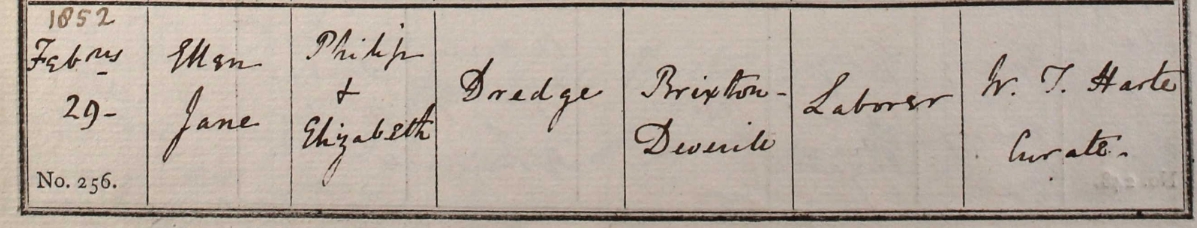 1852
Feb ry
29-
No. 256.
Ellen
Jane
Philip
&
Elizabeth
Dredge
Brixton-
Deverile
Laborer
W. T. Harte
Curate.